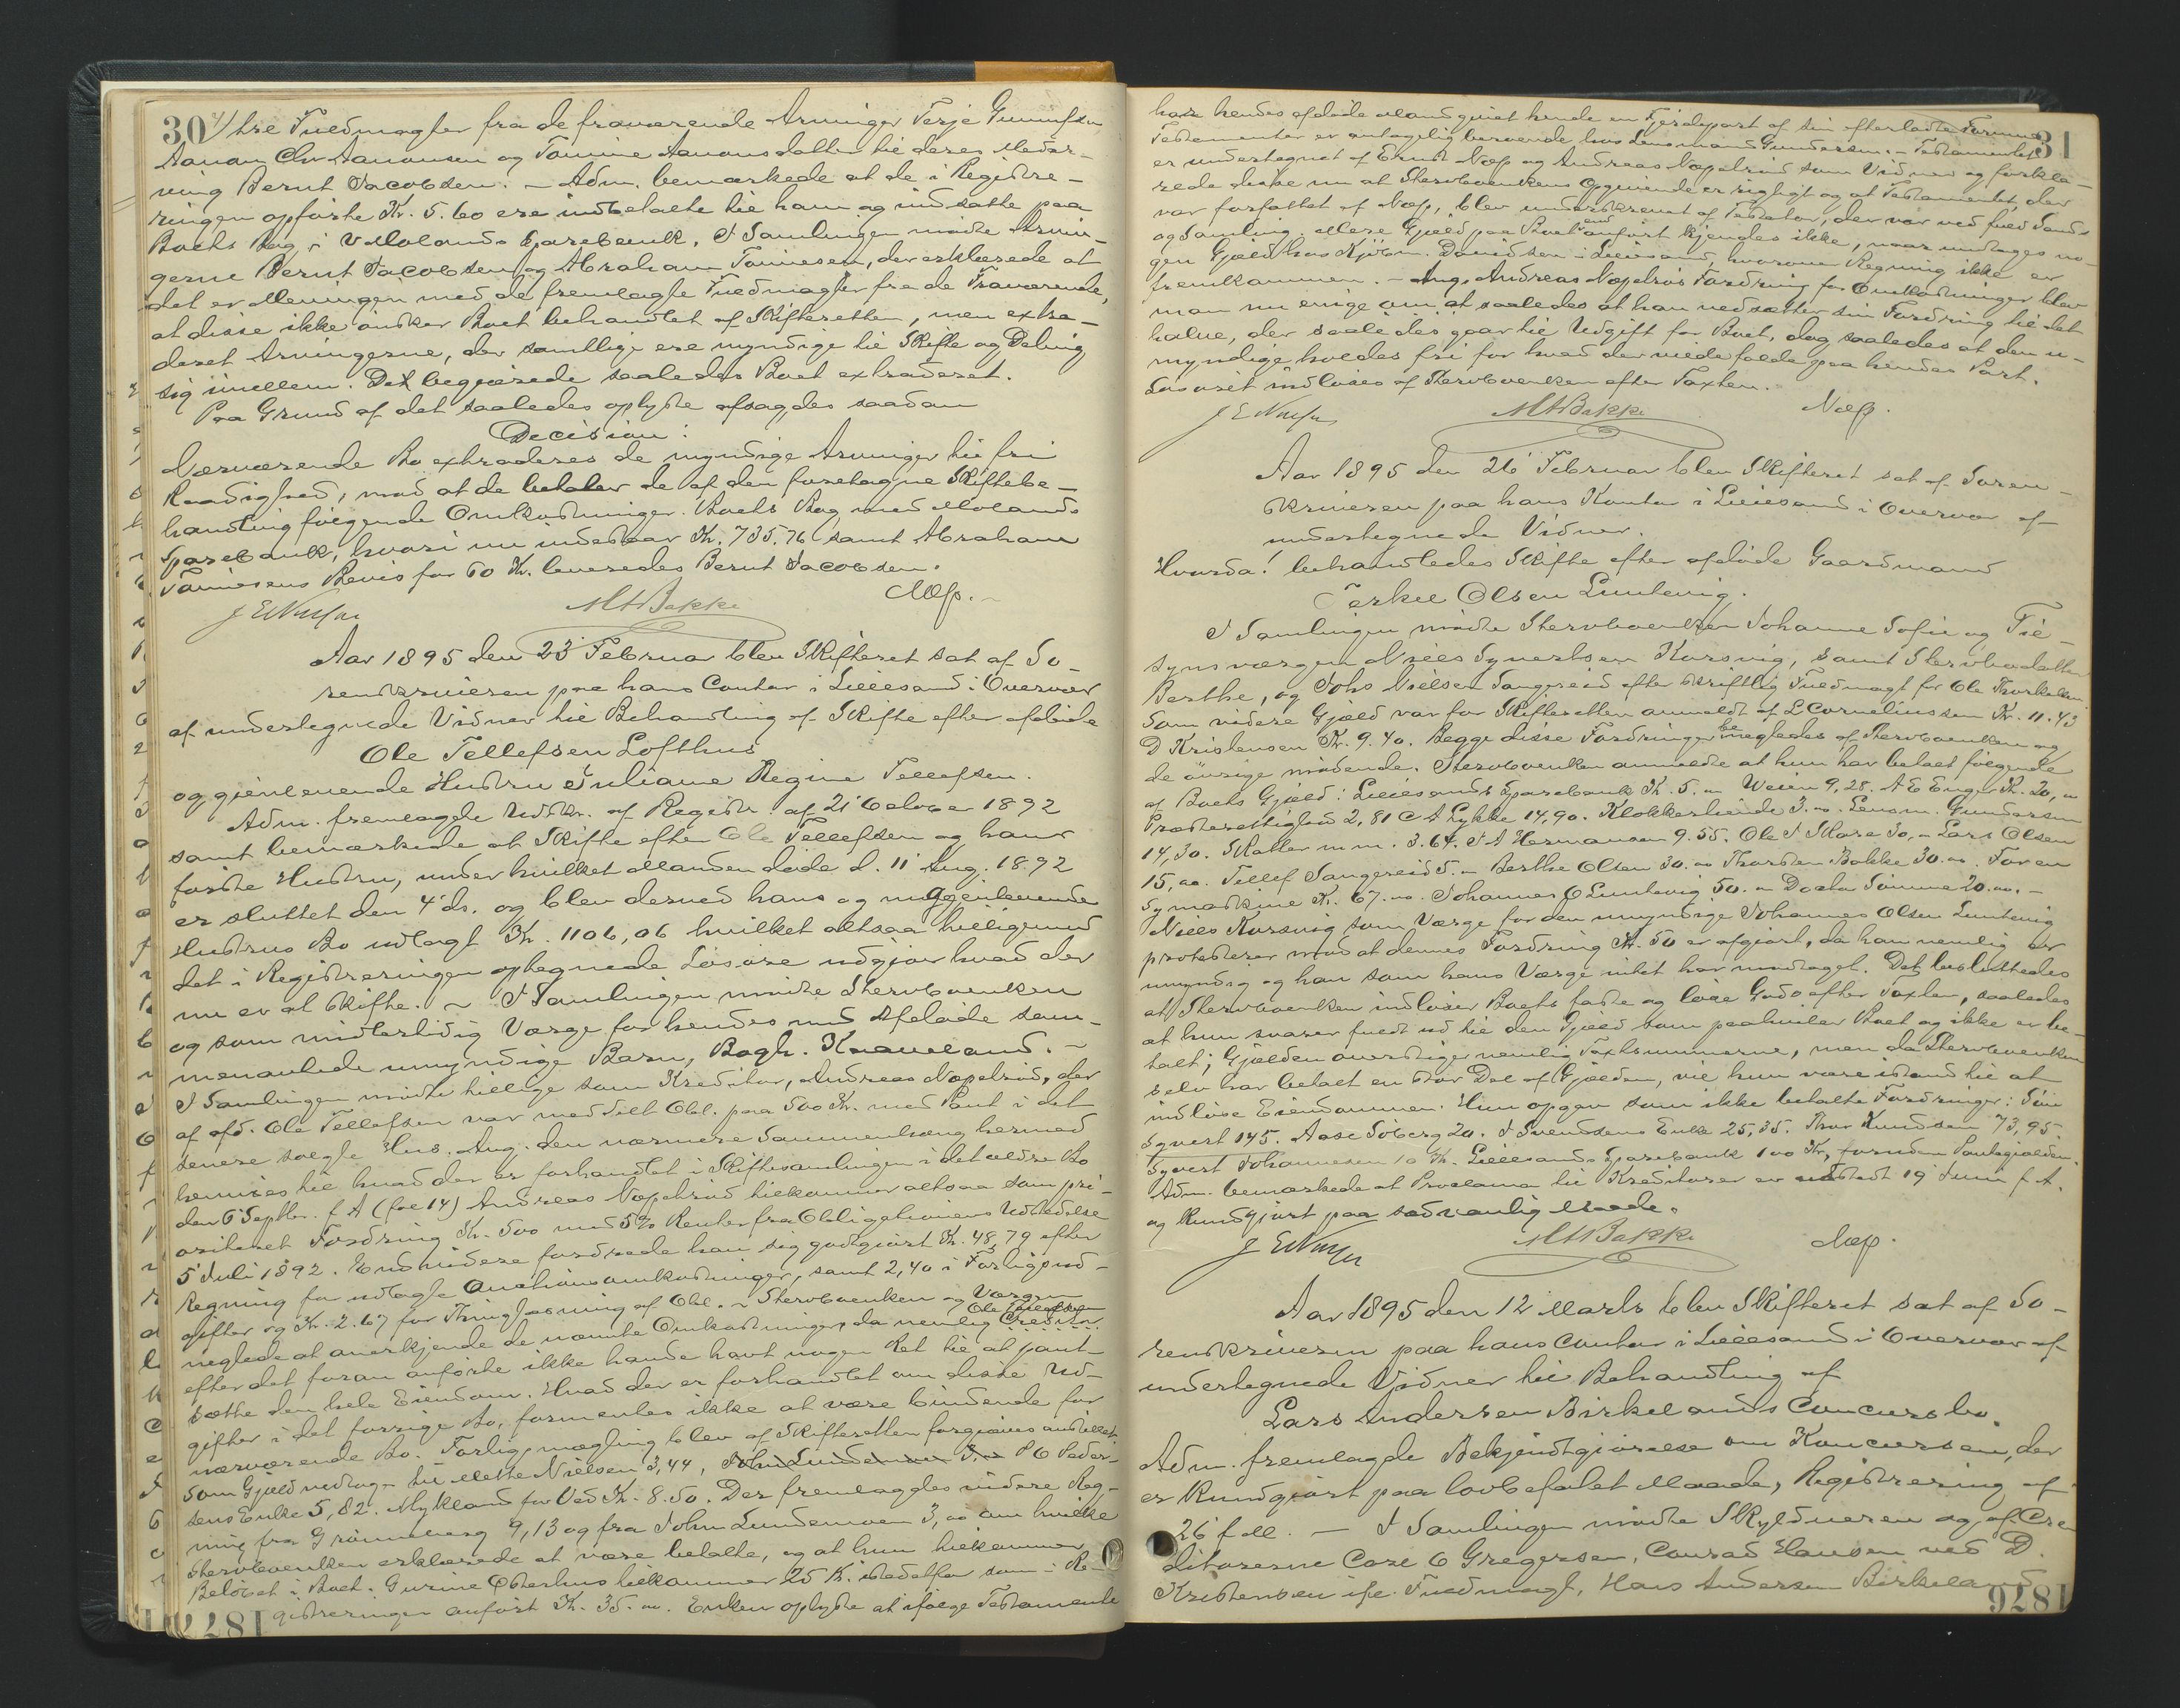 30
tre Fuldmagter fra de fraværende Arvinger Terje Gunnufsen
Aanon Chr Aanonsen og Tomine Aanonsdatter til deres Medar-
ving Bernt Jacobsen. – Adm. bemærkede at de i Registre-
ringen opførte Kr. 5.60 ere indbetalte til ham og indsatte paa
Boets Bog i V Molands Sparebank. I Samlingen mødte Arvin-
gerne Bernt Jacobsen og Abraham Tønnesen, der erklærede at
det er Meningen med de fremlagte Fuldmagter fra de Fraværende,
at disse ikke ønsker Boet behandlet af Skifteretten, men extra-
deret Arvingerne, der samtlige ere myndige til Skifte og Deling
sig imellem. Det begjærede saaledes Boet extraderet.
Paa Grund af det saaledes oplyste afsagdes saadan
Decision:
Nærværende Bo extraderes de myndige Arvinger til fri
Raadighed, mod at de betaler de af den foretagne Skiftebe-
handling følgende Omkostninger. Boets Bog med Molands
Sparebank, hvori nu indestaar Kr. 735.76 samt Abraham
Tønnesens Bevis for 60 Kr. leveredes Bernt Jacobsen.
M A Bakke
Aar 1895 den 23 Februar blev Skifteret sat af So-
renskriveren paa hans Contor i Lillesand i Overvær
af undertegnede Vidner til Behandling af Skifte efter afdøde
Ole Tellefsen Lofthus
og gjenlevende Hustru Juliane Regine Tellefsen.
Adm. fremlagde Udskr. af Registr. af 21 October 1892
samt bemærkede at Skifte efter Ole Tellefsen og hans
første Hustru, under hvilket Manden døde d. 11 Aug. 1892
er sluttet den 4 ds. og blev derved hans og nu gjenlevende
Hustrus Bo udlagt Kr. 1106,06 hvilket altsaa tilligemed
det i Registreringen optegnede Løsøre udgjør hvad der
nu er at skifte. – I Samlingen mødte Stervboenken
og som midlertidig Værge for hendes med Afdøde sam-
menavlede umyndige Børn, Bogh. Knaveland. –
I Samlingen mødte tillige som Kreditor, Andreas Nøpelrød, der
af afd. Ole Tellefsen var meddelt Obl. paa 500 Kr. med Pant i det
senere solgte Hus. Ang. den nærmere Sammenhæng hermed
henvises til hvad der er forhandlet i Skiftesamlingen i det ældre Bo
den 6 Septbr. f A (fol 14) Andreas Nøpelrød tilkommer altsaa som pri-
oriteret Fordring Kr. 500 med 5% Renter fra Obligationens Udstedelse
5 Juli 1892. Endvidere fordrede han sig godtgjort Kr. 48,79 efter
Regning for udlagte Auctionsomkostninger, samt 2,40 i Forligsud-
gifter og Kr. 2.67 for Thinglæsning af Obl. – Stervboenken og Værgen
neglede at anerkjende de nævnte Omkostninger, da nemlig Ole Tellefsen Creditor
efter det foran anførte ikke havde havt nogen Ret til at pant-
sætte den hele Eiendom. Hvad der er forhandlet om disse Ud-
gifter i det forrige Bo, formentes ikke at være bindende for
nærværende Bo. Forligsmægling blev af Skifteretten forgjæves anstillet.
Som Gjæld vedtoges til Mette Nielsen 3,44, John Lundemoen 3.00 P O Peder-
sens Enke 5,82. Mykland for Ved Kr. 8.50. Der fremlagdes videre Reg-
ning fra Grønneberg 9,13 og fra John Lundemoen 3,00 om hvilke
Stervboenken erklærede at være betalte, og at hun tilkommer
Beløbet i Boet. Gurine Østerhus tilkommer 25 Kr. istedetfor som i Re-
gistreringen anført Kr. 35.00. Enken oplyste at ifølge Testamente
31
har hendes afdøde Mand givet hende en Fjerdepart af sin efterladte Formue
Testamentet er antagelig beroende hos Lensmand Gundersen. – Testamentet
er undertegnet af Ernst Næp og Andreas Nøpelrød som Vidner og forkla-
rede disse nu at Stervboenkens Opgivende er rigtigt og at Testamentet, der
var forfattet af Næp, blev underskrevet af Testator, der var ved fuld Sands
og Samling. Mere Gjæld paa Boet end anført kjendes ikke, naar undtages no-
gen Gjæld hos Kjøbm. Davidsen i Lillesand, hvorom Regning ikke er
fremkommen. – Ang. Andreas Nøpelrøs Fordring for Omkostninger blev
man nu enige om at saaledes at han nedsætter sin Fordring til det
halve, der saaledes gaar til Udgift for Boet, dog saaledes at den u-
myndige holdes fri for hvad der vilde falde paa hendes Part.
Løsøret indløses af Stervboenken efter Taxten.
M A Bakke
Aar 1895 den 26 Februar blev Skifteret sat af Soren-
skriveren paa hans Kontor i Lillesand i Overvær af
undertegnede Vidner.
Hvorda! behandledes Skifte efter afdøde Gaardmand
Terkel Olsen Luntevig.
I Samlingen mødte Stervboenken Johanne Sofie og Til-
synsværgen Niels Syvertsen Korsvig, samt Stervbodatter
Berthe, og Johs Nielsen Sangereid efter skriftlig Fuldmagt for Ole Thorkelsen.
Som videre Gjæld var for Skifteretten anmeldt af L Corneliussen Kr. 11.43
D Kristensen Kr. 9.40. Begge disse Fordringer benegtedes af Stervboenken og
de øvrige mødende. Stervboenken anmeldte at hun har betalt følgende
af Boets Gjæld: Lillesands Sparebank Kr. 5.00 Weien 9,28. A E Enger Kr. 20,00
Præsterettighed 2,81 C A Lykke 14,90. Klokkertiende 3.00. Lensm. Gundersen
14,30. Skatter m.m. 3.64. J A Hermansen 9.55. Ole J Skare 30,– Lars Olsen
15,00. Tellef Sangereid 5.– Berthe Olsen 30.00 Thorsten Bakke 30.00. For en
Symaskine Kr. 67.00. Johannes O Luntevig 50.– Dorthe Sømme 20.00. –
Niels Korsvig som Værge for den umyndige Johannes Olsen Luntevig
protesterer mod at dennes Fordring Kr. 50 er afgjort, da han nemlig er
umyndig og han som hans Værge intet har modtaget. Det besluttedes
at Stervboenken indløser Boets faste og løse Gods efter Taxten, saaledes
at hun svarer fuldt ud til den Gjæld som paahviler Boet og ikke er be-
talt; Gjælden overstiger nemlig Taxtsummerne, men da Stervboenken
selv har betalt en stor Del af Gjælden, vil hun være istand til at
indløse Eiendommen. Hun opgav som ikke betalte Fordringer: Sine
Syvert 145. Aase Søberg 20. J Svendsens Enke 25,35. Thor Knudsen 73,95.
Syvert Johannesen 10 Kr. Lillesands Sparebank 100 Kr, foruden Pantegjælden.
Adm. bemærkede at Proclama til Kreditorer er udstedt 19 Juni f A.
og kundgjort paa sædvanlig Maade.
M A Bakke
Aar 1895 den 12 Marts blev Skifteret sat af So-
renskriveren paa hans Contor i Lillesand i Overvær af
undertegnede Vidner til Behandling af
Lars Andersen Birkelands Concursbo.
Adm. fremlagde Bekjendtgjørelse om Konkursen, der
er kundgjort paa lovbefalet Maade, Registrering af
26 f M. – I Samlingen mødte Skyldneren og af Cre
ditorerne Carl O Gregersen, Conrad Hansen ved D.
Kristensen ifl. Fuldmagt, Hans Andersen Birkeland